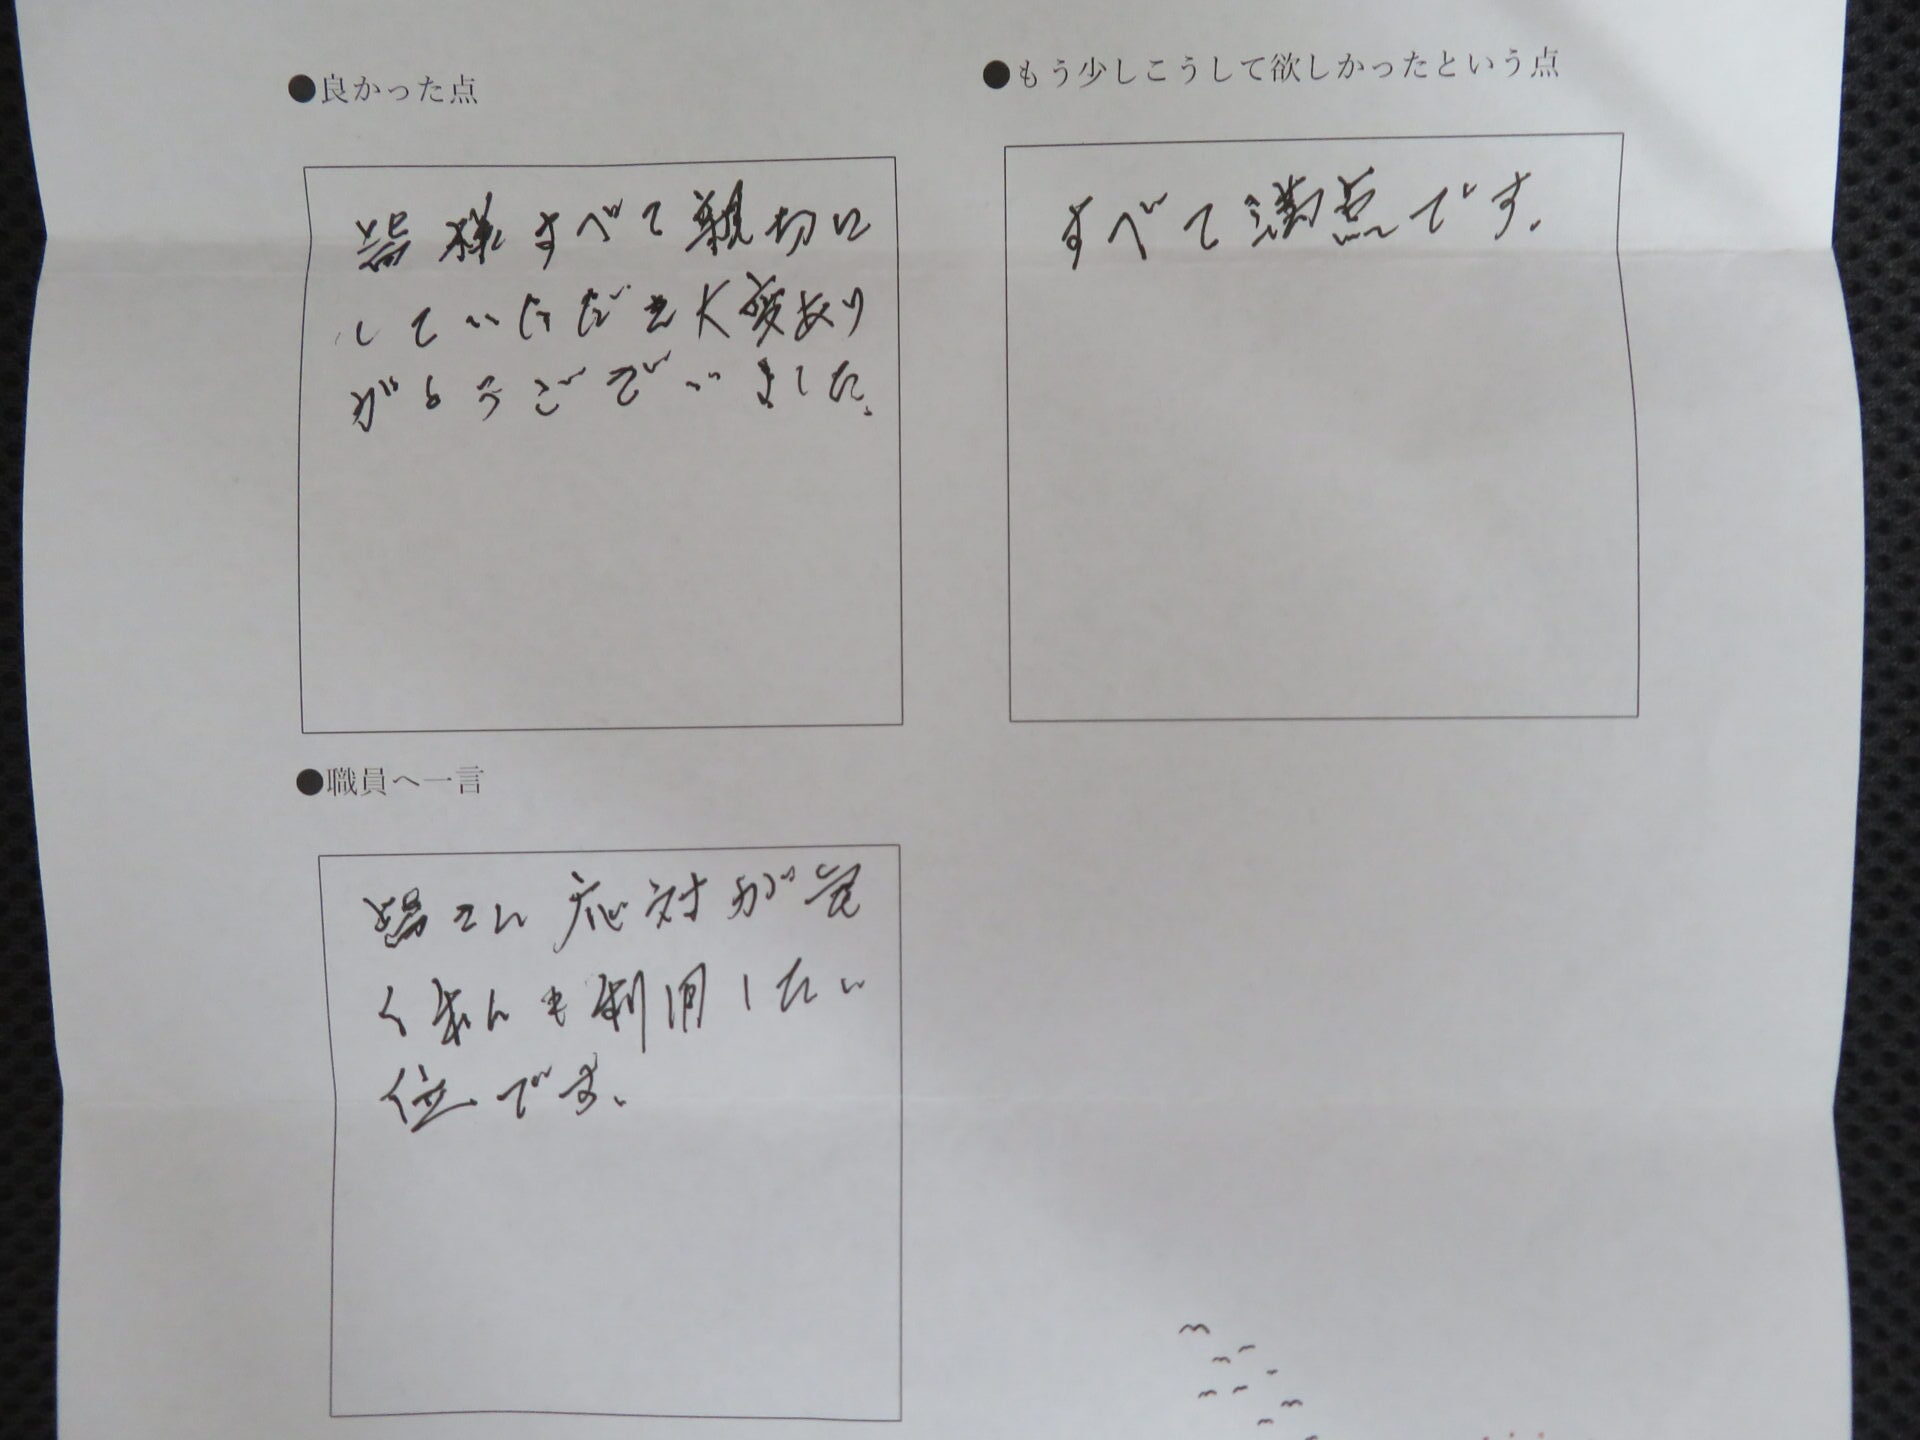 ●良かった点
皆様すべて親切に
していただき大変あり
がとうございました。
●もう少しこうして欲しかったという点
すべて満点です。
●職員へ一言
皆さん応対が良
く 利用したい
位です。